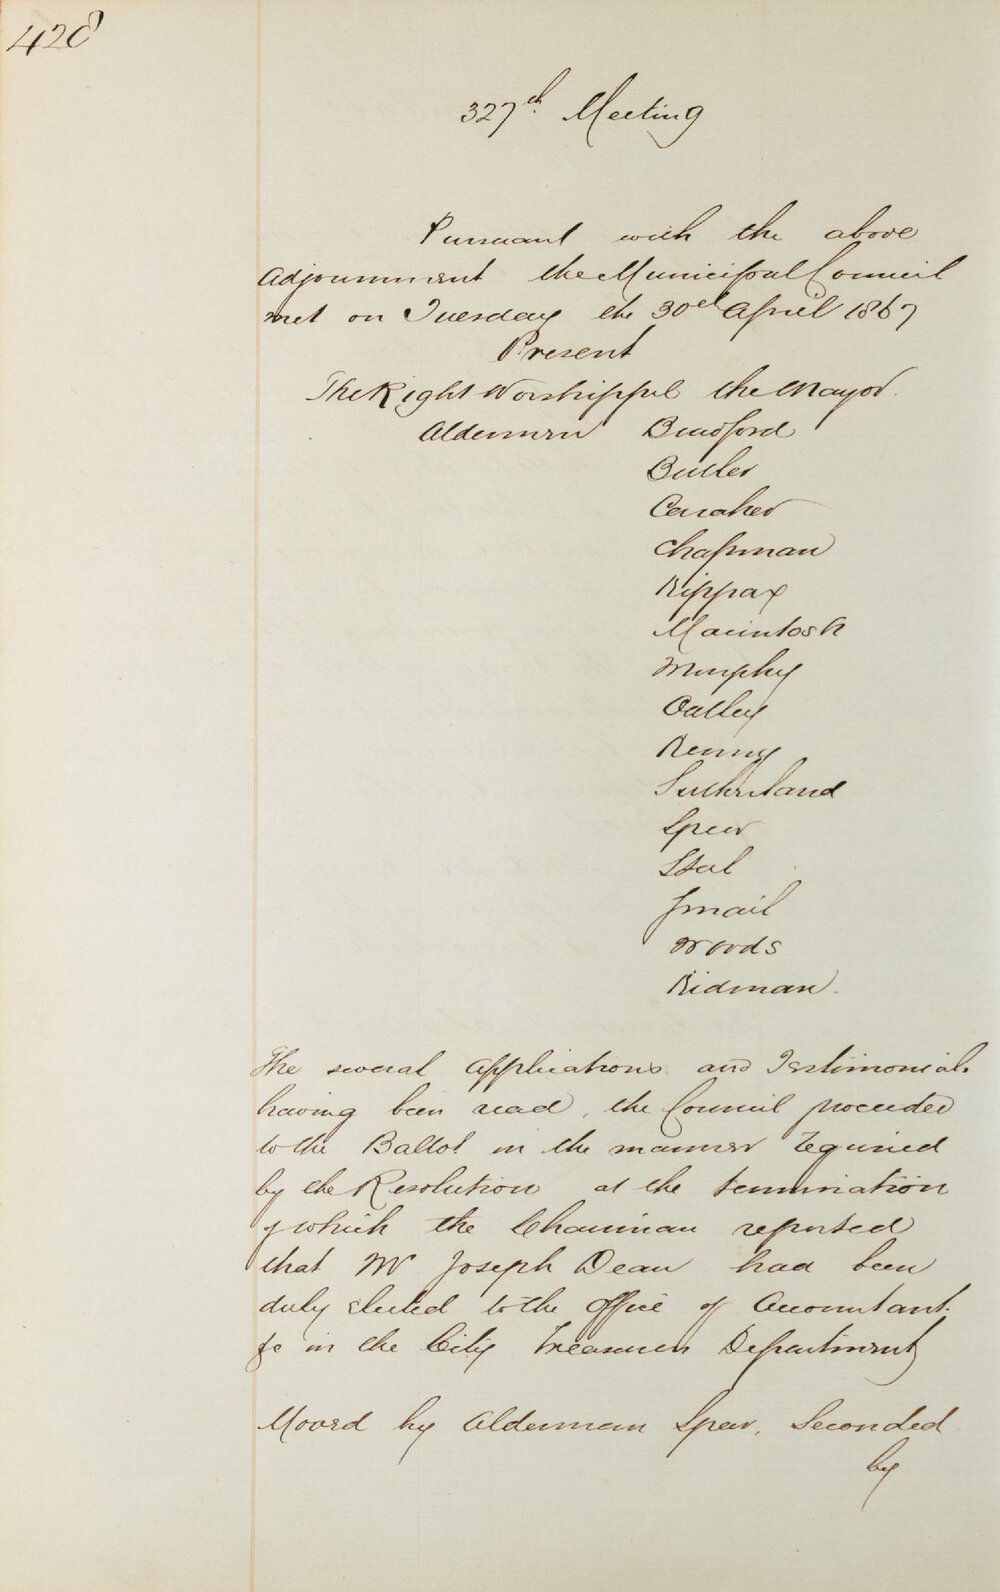 428
327th Meeting
Pursuant with the above
Adjournment the Municipal Council
met on Tuesday the 30th April 1867
Present
The Right Worshippful the Mayor.
Aldermen Bradford
Butler
Caraher
Chapman
Kippax
Macintosh
Murphy
Oatley
Renny
Sutherland
Speer
Steel
Smail
Woods
Kidman.
The several Applications and Testimonials
having been read, the Council proceeded
to the Ballot in the manner required
by the Resolution at the termination
of which the Chairman reported
that Mr Joseph Dean had been
duly elected to the Office of Accountant
&c in the City Treasurers Department
Moved by Alderman Speer, Seconded
by